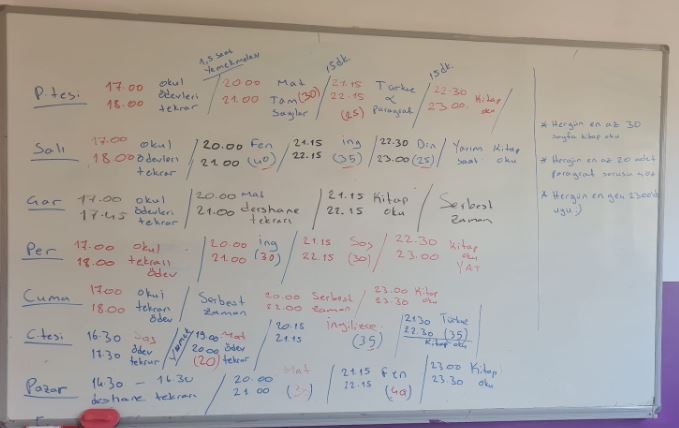 1,5 saat yemek molası
15 dk.
15 dk.
P.tesi 17.00 18.00 okul ödevleri tekrar / 20.00 21.00 Mat (30) Tam Sayılar / 21.15 22.15 (25) Türkçe & paragraf / 22.30 23.00 Kitap oku /
Salı 17.00 18.00 okul ödevleri tekrar / 20.00 21.00 Fen (40) / 21.15 22.15 ing (35) / 22.30 23.00 Din (25) / Yarım saat Kitap oku
Çar 17.00 17.45 okul ödevleri tekrar / 20.00 21.00 Mat dershane tekrarı / 21.15 22.15 Kitap oku / Serbest zaman
Per 17.00 18.00 okul tekrarı ödev / 20.00 21.00 ing (30) / 21.15 22.15 Sos (30) / 22.30 23.00 Kitap oku YAT
Cuma 17.00 18.00 okul tekrarı ödev / Serbest zaman 20.00 22.00 Serbest zaman / 23.00 23.30 Kitap oku
C.tesi 16.30 17.30 ödev tekrar / Yemek / 19.00 20.00 (20) Mat ödev tekrar / 20.15 21.15 ingilizce (35) / 21.30 22.30 Türkçe (35) Kitap oku
Pazar 14.30 - 16.30 dershane tekrarı / 20.00 21.00 Mat / 21.15 22.15 Fen (40) / 23.00 23.30 Kitap oku
* Hergün en az 30 sayfa kitap oku
* Hergün en az 20 adet paragraf sorusu çöz
* Hergün en geç 23:00'da uyu :)